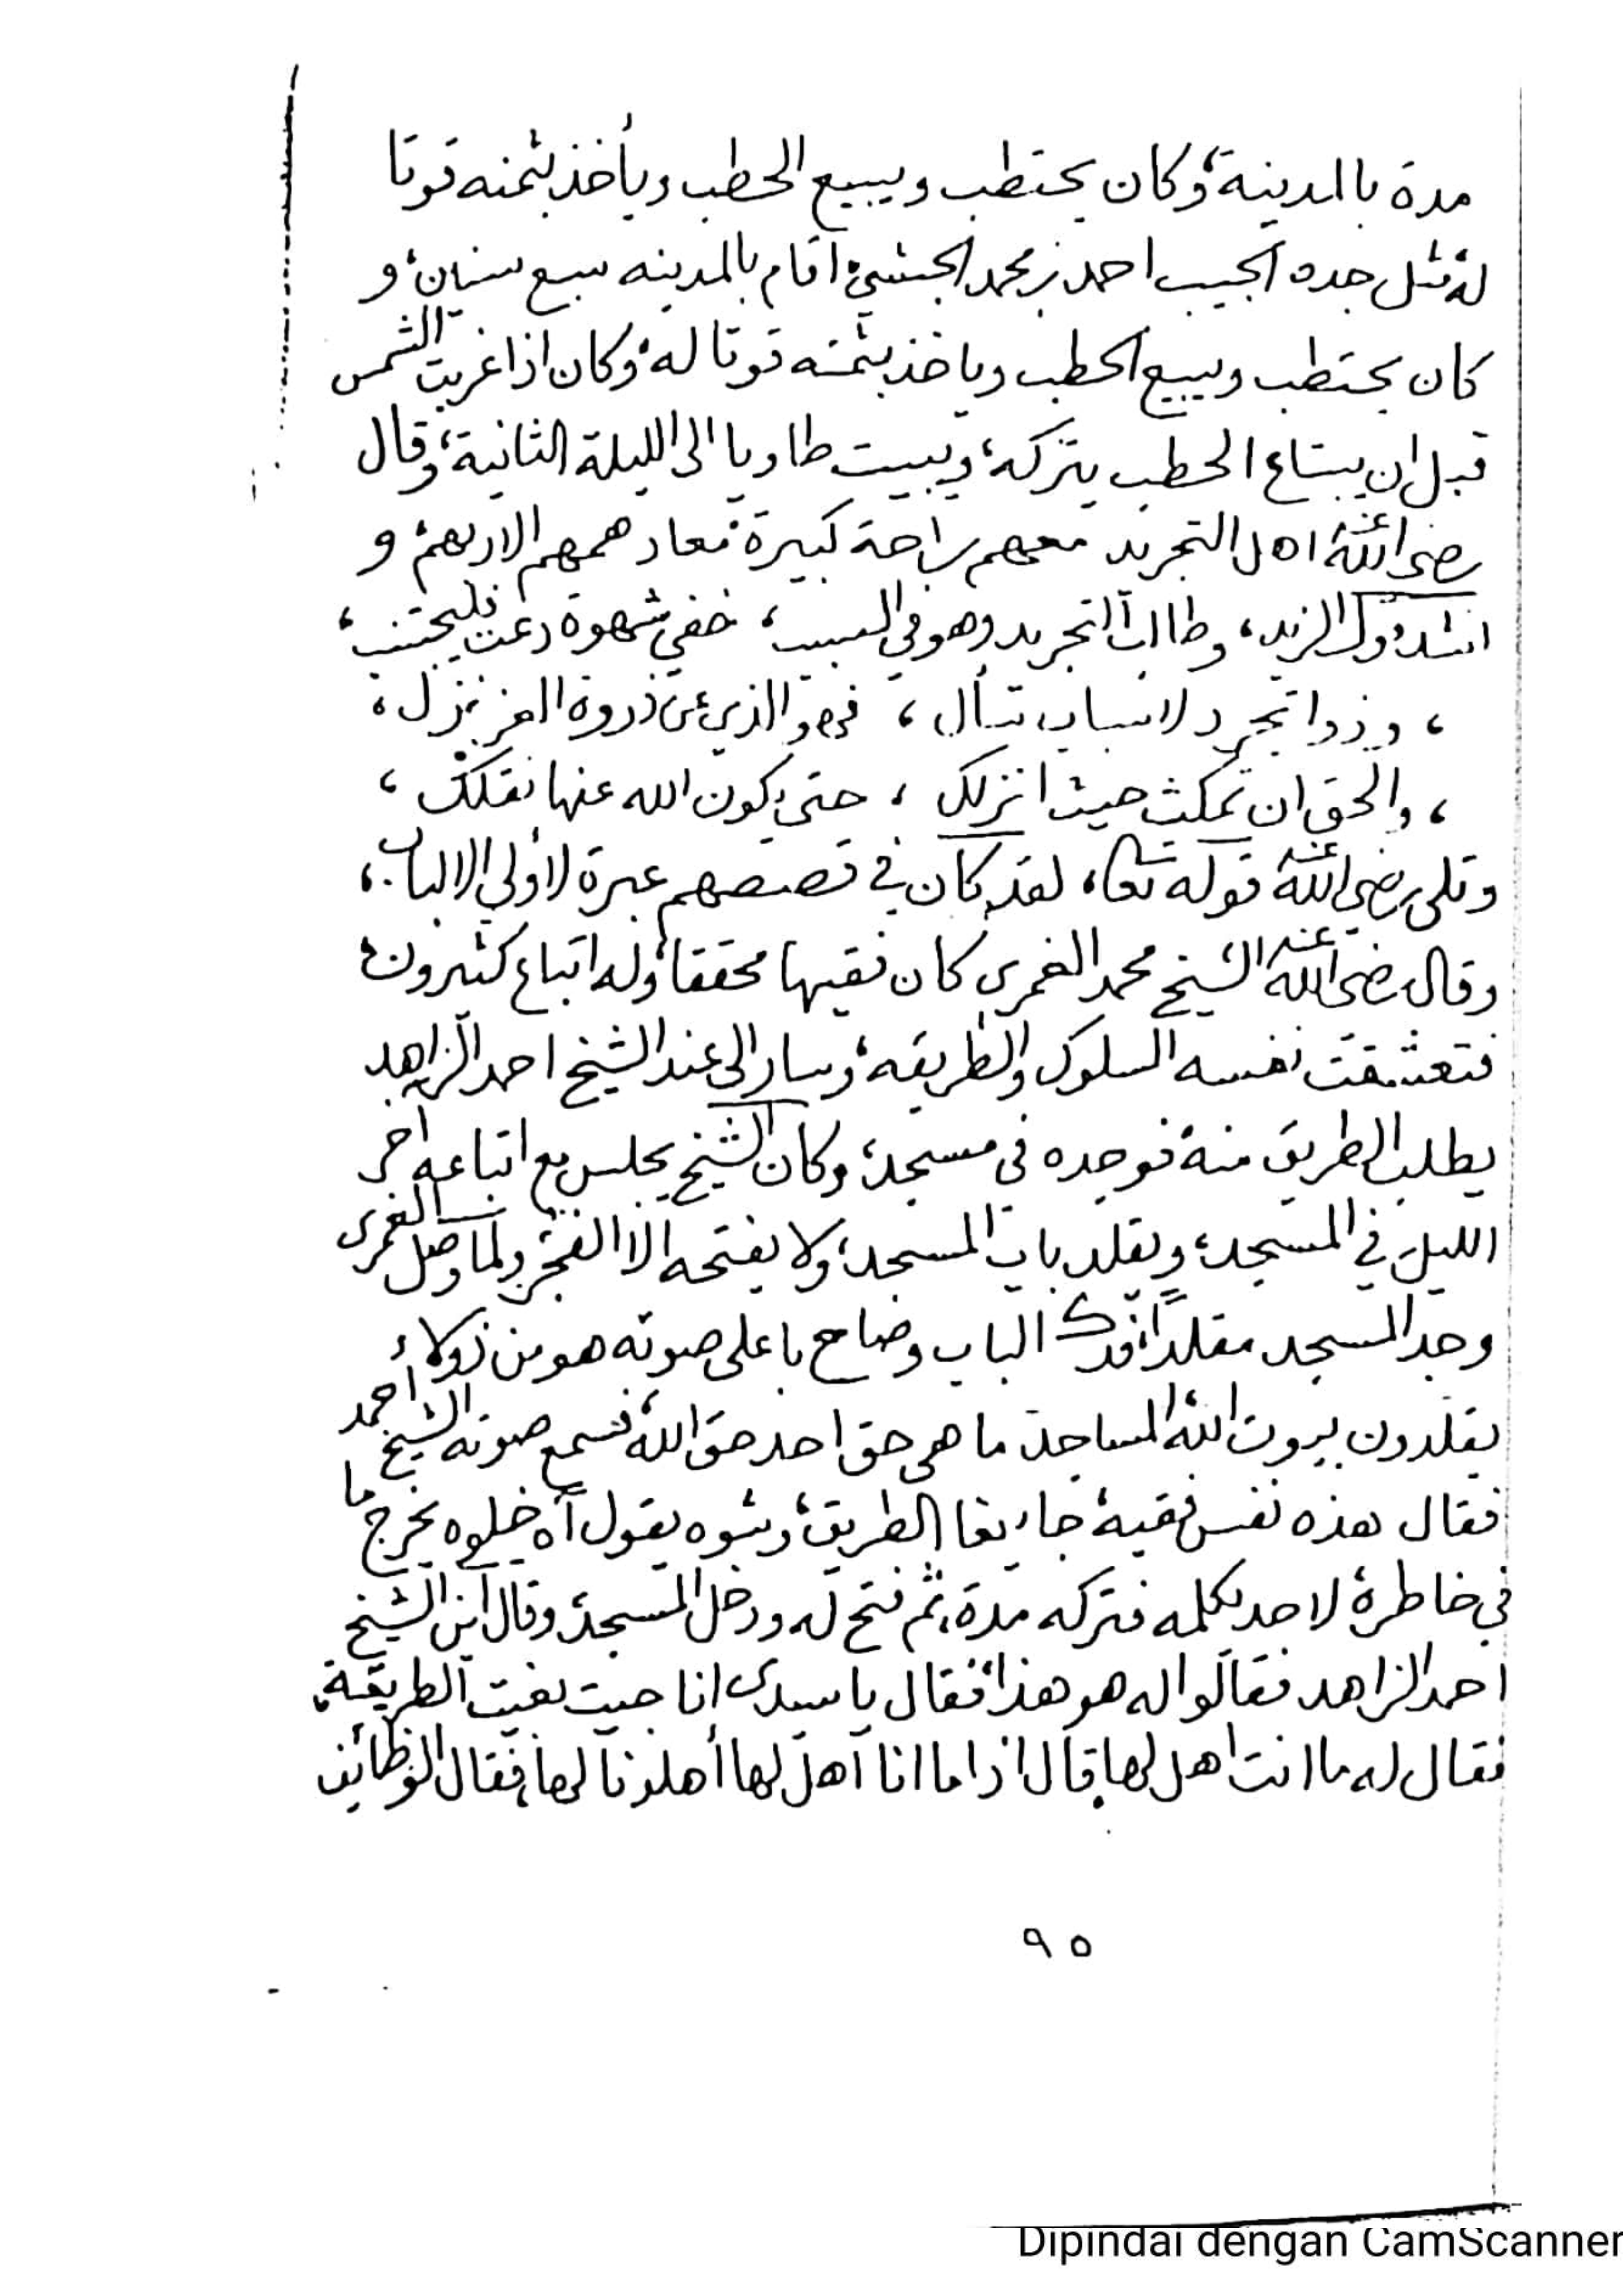 مدة بالمدينة، وكان يحتطب ويبيع الحطب ويأخذ بثمنه قوتا
له، مثل جده الحبيب احمد بن محمد الحبشي، اقام بالمدينه سبع سنين، و
كان يحتطب ويبيع الحطب وياخذ بثمنه قوتا له، وكان اذا غربت الشمس
قبل ان يبتاع الحطب يتركه، ويبيت طاويا الى الليلة الثانية، وقال
رضي الله عنه اهل التجريد معهم راحة كبيرة، معاد همهم الا ربهم، و
انشد قول الزبد، وطالب التجريد وهو في السبب، خفي شهوة دعت فليجتنب،
، وذوا تجرد لاسباب سأل، فهو الذي عن ذروة العز نزل،
، والحق ان تمكث حيث انزلك، حتى يكون الله عنها نقلك،
وتلى رضي الله عنه قوله تعا، لقد كان في قصصهم عبرة لاولي الالباب،
وقال رضي الله عنه الشيخ محمد الغمري كان فقيها محققا، وله اتباع كثيرون،
فتعشقت نفسه السلوك والطريقه، وسار الى عند الشيخ احمد الزاهد
يطلب الطريق منه، فوجده فى مسجده، وكان الشيخ يجلس مع اتباعه آخر
الليل في المسجد، ويقلد باب المسجد، ولا يفتحه الا الفجر، ولما وصل الغمرى
وجد المسجد مقلدًا، فدك الباب وصاح باعلى صوته هو من ذولاء
يقلدون بيوت الله المساجد، ما هى حق احد حق الله، فسمع صوته الشيخ احمد
فقال هذه نفس فقيه، جا يبغا الطريق، وشوه يقول آه خلوه يخرج ما
في خاطره، لا حد يكلمه فتركه مدة، ثم فتح له ودخل المسجد، وقال اين الشيخ
احمد الزاهد فقالوا له هو هذا، فقال يا سيدى انا جيت بغيت الطريقة،
فقال له ما انت اهل لها، قال اذا ما انا اهل لها أهلونا لها، فقال الوظائف
٩٥
Dipindai dengan CamScanner